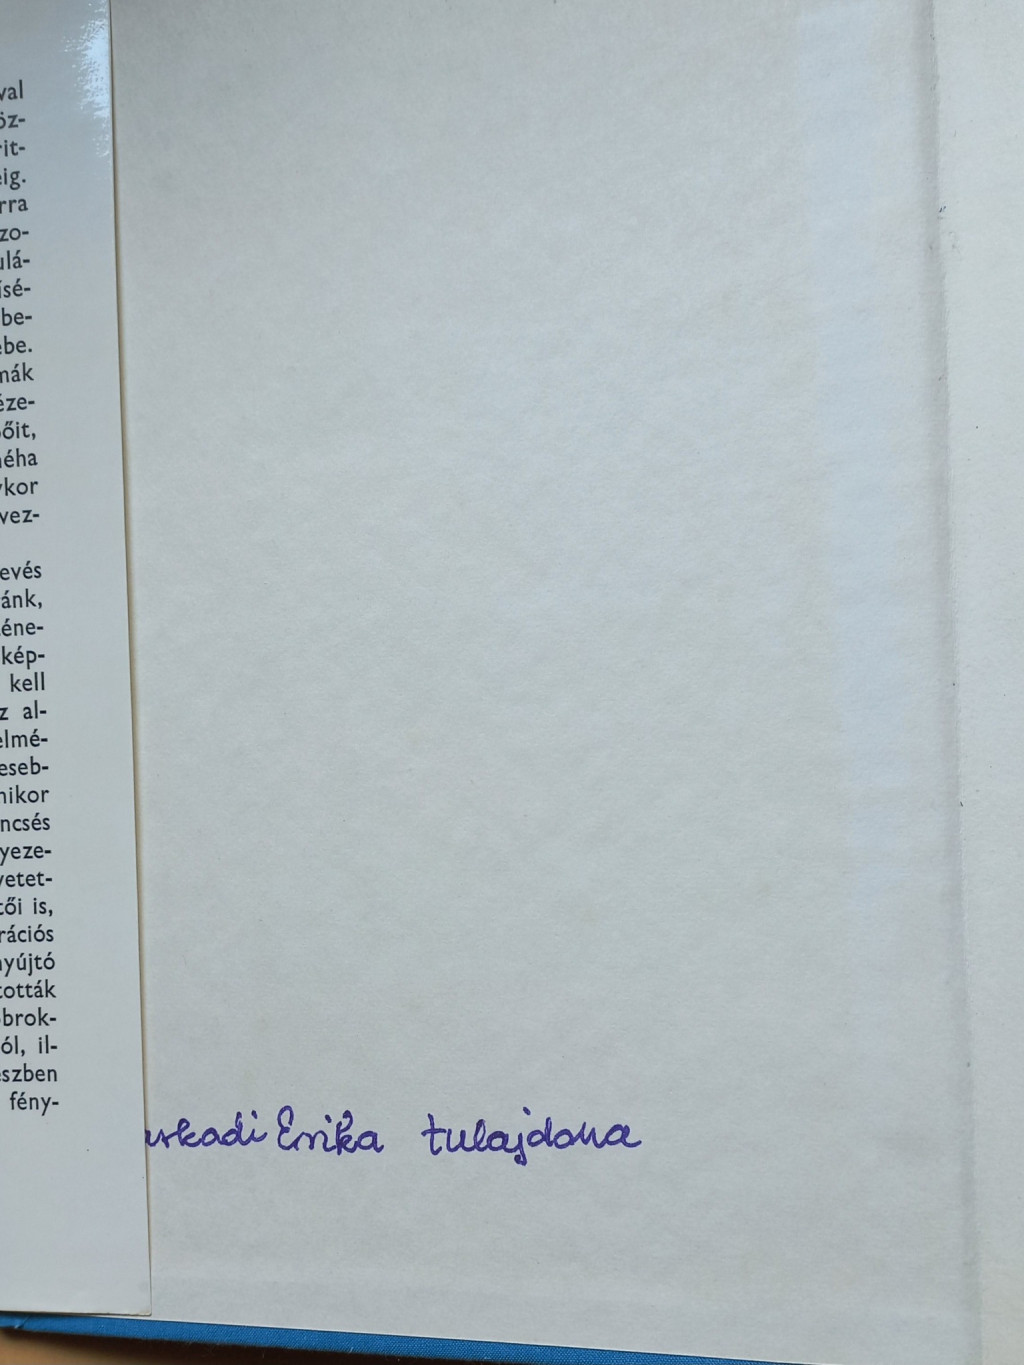 val
öz-
rit-
eig.
rra
zo-
ulá-
ísé-
be-
ebe.
mák
éze-
őit,
néha
ykor
vez-
evés
ánk,
éne-
kép-
kell
z al-
elmé-
eseb-
nikor
ncsés
yeze-
vetet-
tői is,
rációs
nyújtó
tották
obrok-
ól, il-
eszben
fény-
Erika tulajdona